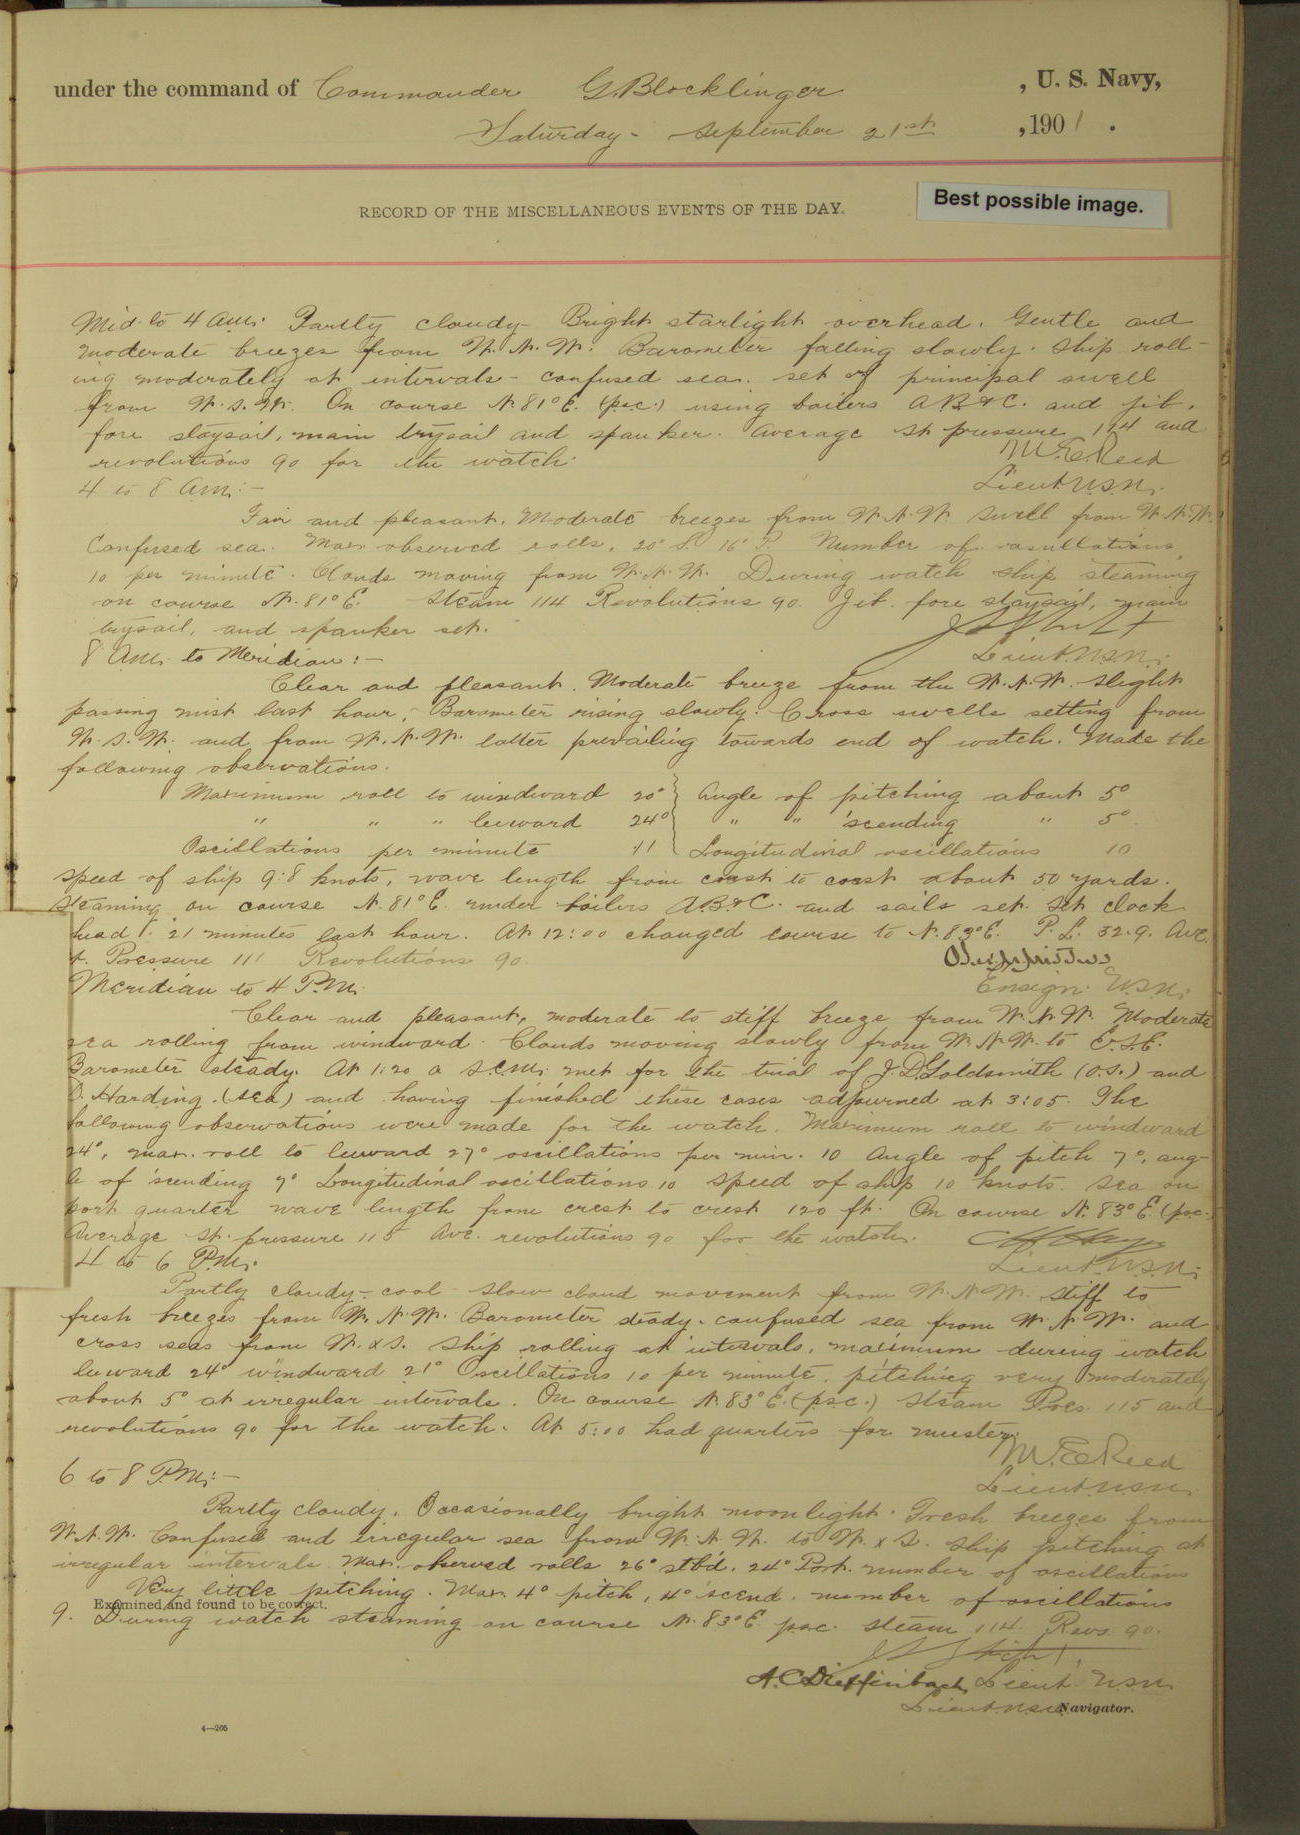 under the command of Commander G. Blocklinger, U. S. Navy,
Saturday - September 21st, 1901.
RECORD OF THE MISCELLANEOUS EVENTS OF THE DAY.
Best possible image.
Mid to 4 a.m. Partly cloudy - Bright starlight overhead. Gentle and
moderate breezes from W.N.W. Barometer falling slowly. Ship roll-
ing moderately at intervals - confused sea. set of principal swell
from W.S.W. On course N. 81° E. (p.s.c.) using boilers A B & C. and jib.
fore staysail, main trysail and spanker. Average st. pressure 114 and
revolutions 90 for the watch.
M.E. Reed
4 to 8 A.M. :-
Lieut. U.S.N.
Fair and pleasant. Moderate breezes from W.N.W. Swell from W.N.W.
Confused sea. Max. observed rolls, 20° S. 16° P. Number of oscillations
10 per minute. Clouds moving from W.N.W. During watch ship steaming
on course N. 81° E. Steam 114 Revolutions 90. Jib. fore staysail, main
trysail, and spanker set.
8 A.M. to Meridian :-
Lieut. U.S.N.
Clear and pleasant. Moderate breeze from the W.N.W. slight
passing mist last hour, Barometer rising slowly. Cross swells setting from
W.S.W. and from W.N.W. latter prevailing towards end of watch. Made the
following observations.
Maximum roll to windward 20° } Angle of pitching about 5°
" " " leeward 24° } " " 'scending " 5°
Oscillations per minute 11 { Longitudinal oscillations 10
speed of ship 9.8 knots, wave length from crest to crest about 50 yards.
Steaming on course N. 81° E. under boilers A.B. & C. and sails set. Set clock
head 21 minutes last hour. At 12:00 changed course to N. 83° E. P.L. 32.9. Ave.
t. Pressure 111 Revolutions 90.
Meridian to 4 P.M.
Ensign. U.S.N.
Clear and pleasant, moderate to stiff breeze from W.N.W. Moderate
sea rolling from windward. Clouds moving slowly from W.N.W. to E.S.E.
Barometer steady. At 1:20 a S.C.M. met for the trial of J. D. Goldsmith (O.S.) and
Harding. (Sea) and having finished these cases adjourned at 3:05. The
following observations were made for the watch. Maximum roll to windward
24°, max. roll to leeward 27° oscillations per min. 10 Angle of pitch 7°, ang-
le of 'scending 7° Longitudinal oscillations 10 speed of ship 10 knots. Sea on
port quarter wave length from crest to crest 120 ft. On course N. 83° E. (p.s.c.)
Average st. pressure 115 Ave. revolutions 90 for the watch.
4 to 6 P.M.
Lieut. U.S.N.
Partly cloudy - cool - Slow cloud movement from W.N.W. stiff to
fresh breezes from W.N.W. Barometer steady. confused sea from W.N.W. and
cross seas from W. x S. Ship rolling at intervals, maximum during watch
leeward 24° windward 21° Oscillations 10 per minute. pitching very moderately
about 5° at irregular intervals. On course N. 83° E. (p.s.c.) Steam Pres. 115 and
revolutions 90 for the watch. At 5:00 had quarters for muster.
M.E. Reed
6 to 8 P.M. :-
Lieut. U.S.N.
Partly cloudy. Occasionally bright moonlight. Fresh breezes from
W.N.W. Confused and irregular sea from W.N.W. to W. x S. Ship pitching at
irregular intervals. Max. observed rolls 26° stb'd. 24° Port. number of oscillations
Very little pitching. Max. 4° pitch, 4° 'scend. number of oscillations
Examined and found to be correct.
9. During watch steaming on course N. 83° E. p.s.c. steam 114. Revs. 90.
A.C. Dieffenbach, Lieut. U.S.N.
Lieut. U.S.N. Navigator.
4—205